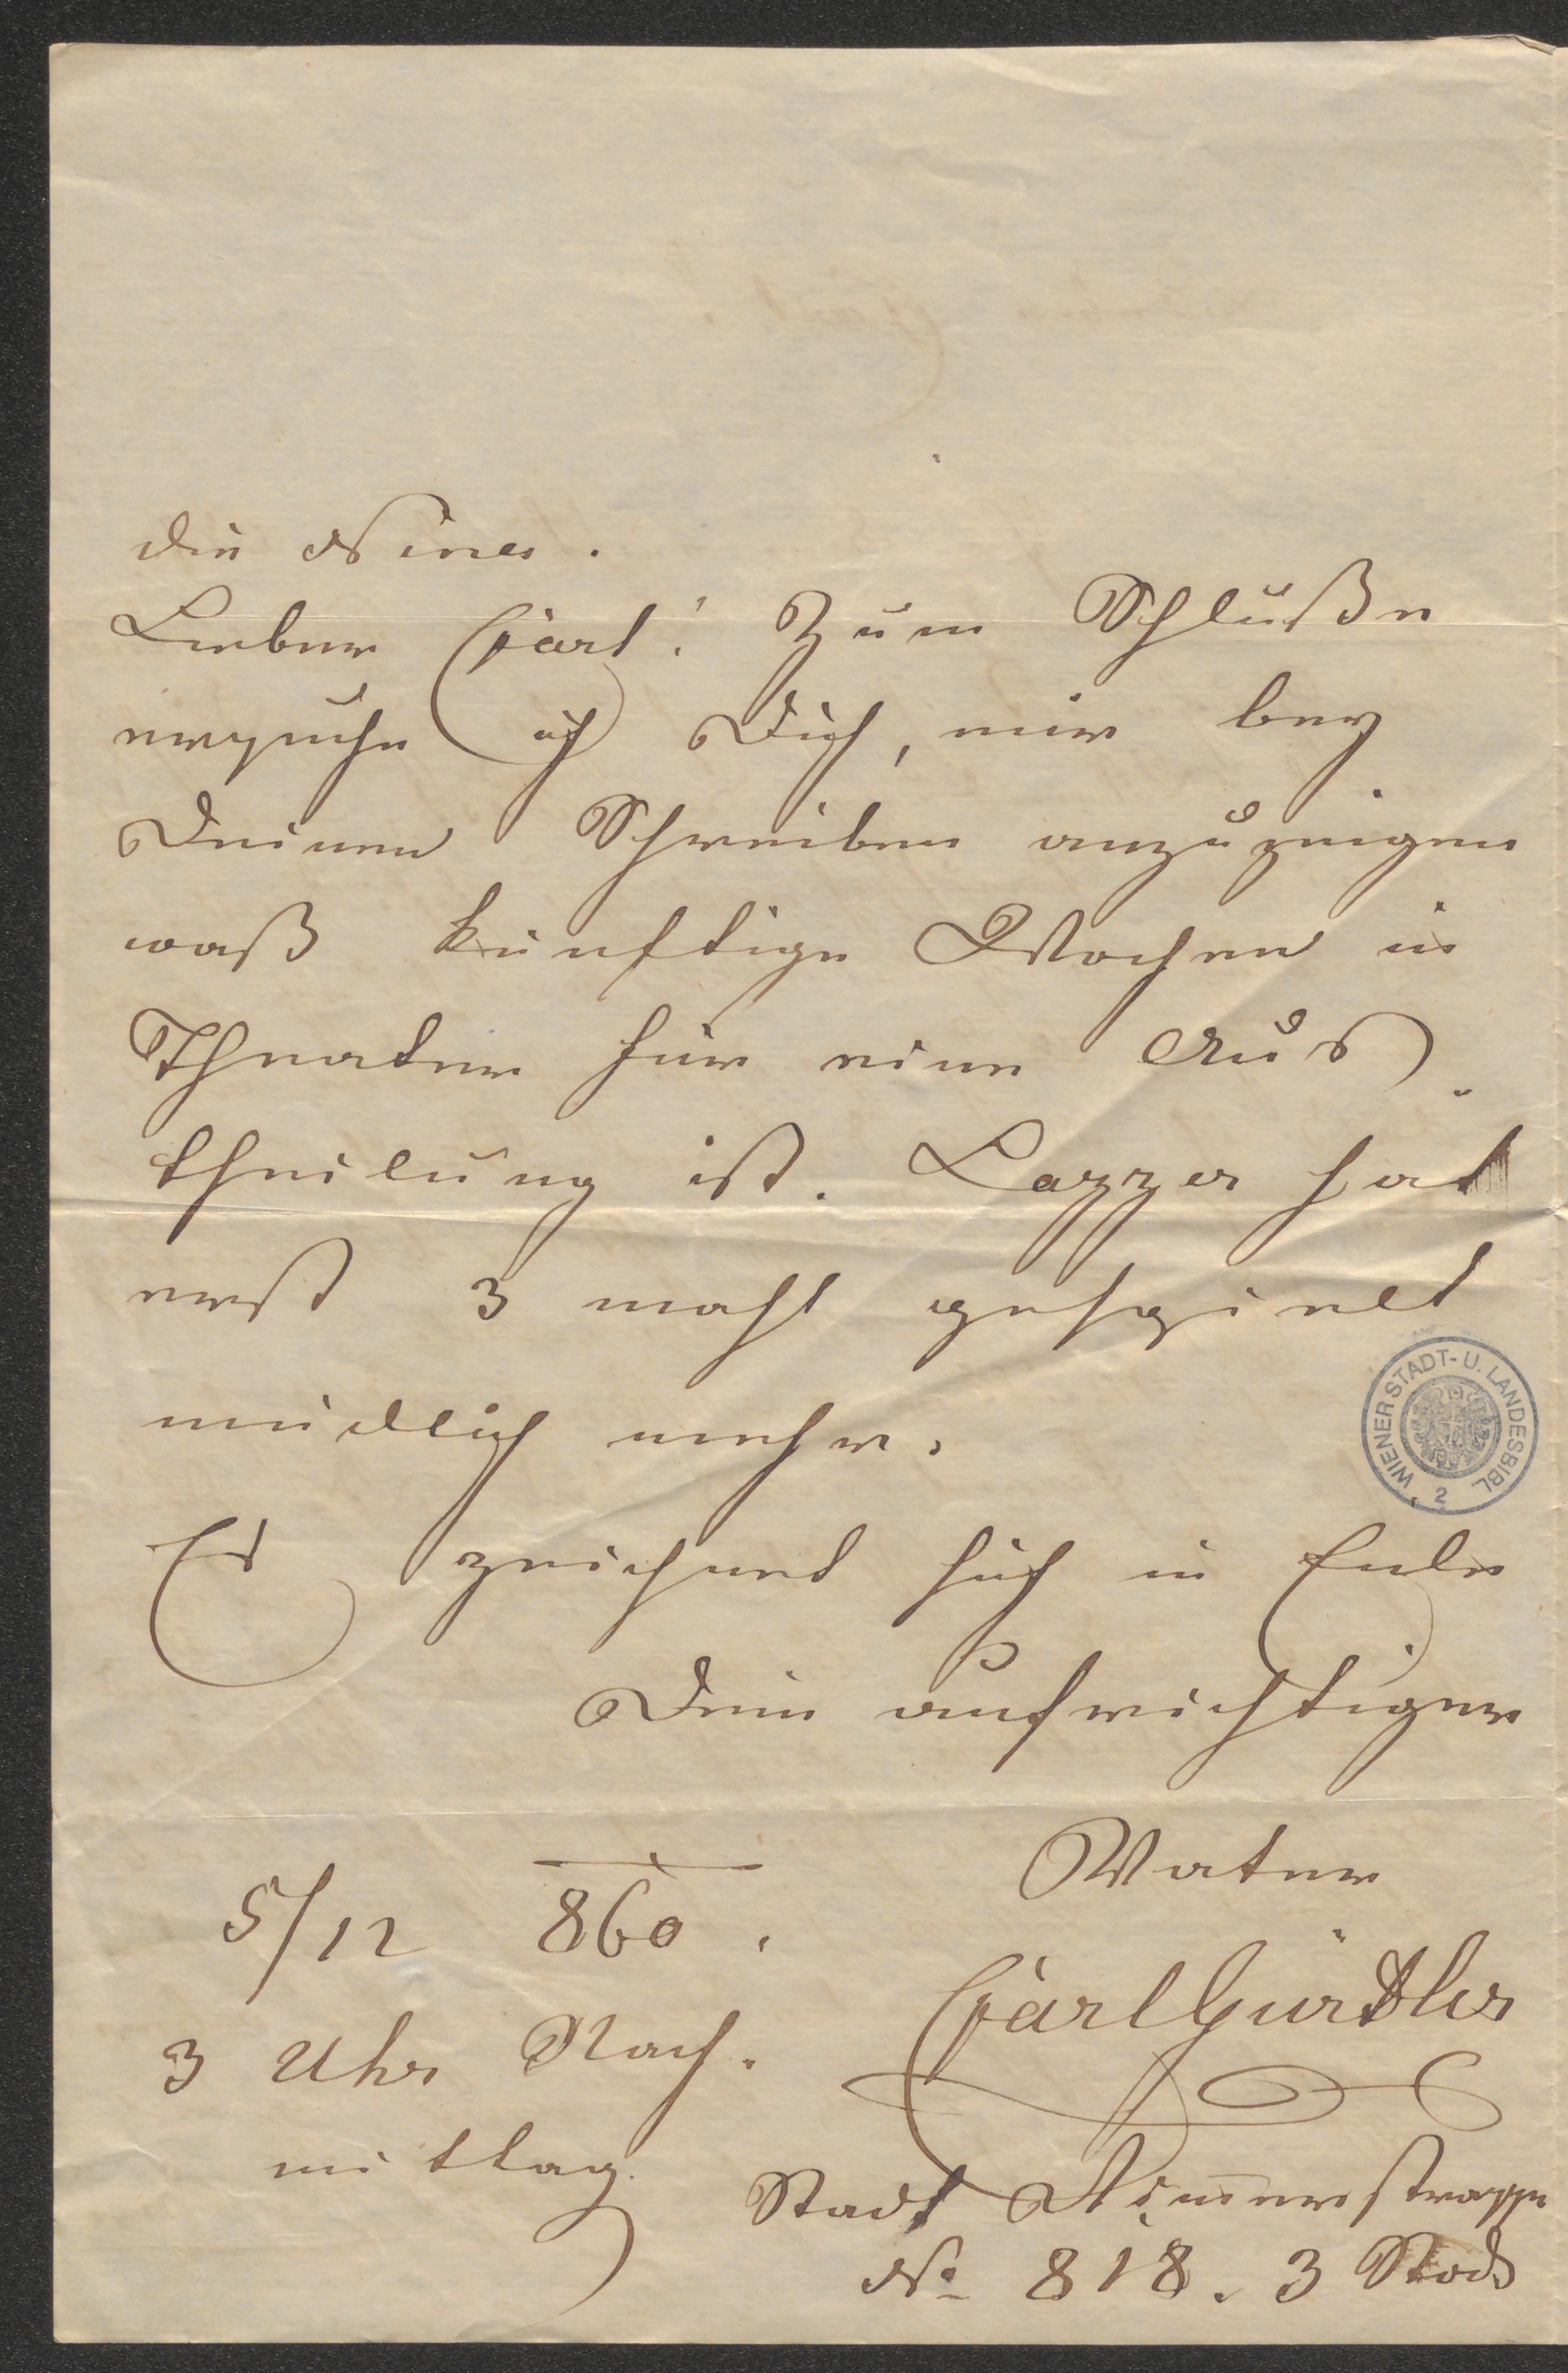 die Nina.
Lieber Carl! Zum Schluße
ersuche ich Dich, mir bey
Deinen Schreiben anzuzeigen
waß künftige Wochen in
Theater für eine Aus-
theilung ist. Lazzer hat
erst 3 mahl gespielt
mündlich mehr.
Es zeichnet sich in Eule
Dein aufrichtiger
Vater
5/12 860.
Carl Gürtler
3 Uhr Nach-
mittag.
Stadt Riemerstrasse
No 818. 3 Stock
WIENER STADT- U. LANDESBIBL. 2